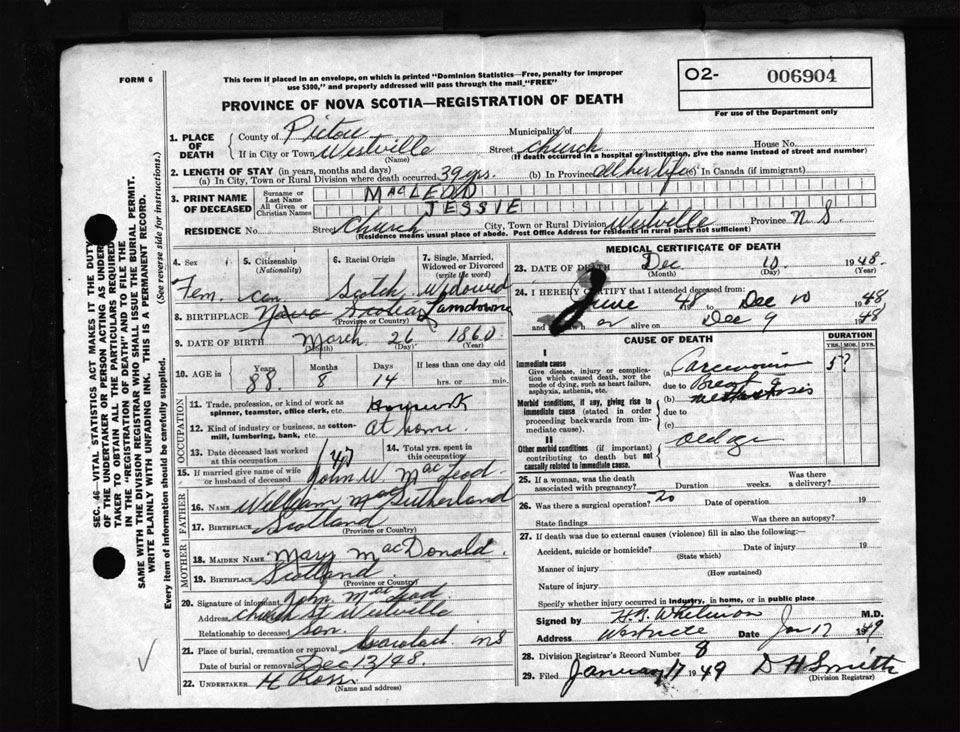 FORM 6
This form if placed in an envelope, on which is printed "Dominion Statistics—Free, penalty for improper
use $300," and properly addressed will pass through the mail "FREE"
O2- 006904
For use of the Department only
PROVINCE OF NOVA SCOTIA—REGISTRATION OF DEATH
SEC. 46—VITAL STATISTICS ACT MAKES IT THE DUTY
OF THE UNDERTAKER OR PERSON ACTING AS UNDER-
TAKER TO OBTAIN ALL THE PARTICULARS REQUIRED
IN THE "REGISTRATION OF DEATH" AND TO FILE THE
SAME WITH THE DIVISION REGISTRAR WHO SHALL ISSUE THE BURIAL PERMIT.
WRITE PLAINLY WITH UNFADING INK. THIS IS A PERMANENT RECORD.
Every item of information should be carefully supplied. (See reverse side for instructions.)
1. PLACE OF DEATH
County of Pictou Municipality of
If in City or Town Westville Street Church House No.
(Name) (If death occurred in a hospital or institution, give the name instead of street and number)
2. LENGTH OF STAY (in years, months and days)
(a) In City, Town or Rural Division where death occurred 39 yrs. (b) In Province all her life (c) In Canada (if immigrant)
3. PRINT NAME OF DECEASED
Surname or Last Name MACLEOD
All Given or Christian Names JESSIE
RESIDENCE No. Street Church City, Town or Rural Division Westville Province N.S.
(Residence means usual place of abode. Post Office Address for residents in rural parts not sufficient)
4. Sex 5. Citizenship (Nationality) 6. Racial Origin 7. Single, Married, Widowed or Divorced (write the word)
Fem. can. Scotch Widowed
8. BIRTHPLACE Nova Scotia Lansdowne
(Province or Country)
9. DATE OF BIRTH March 26 1860
(Month) (Day) (Year)
10. AGE in Years Months Days If less than one day old
88 8 14 hrs. or min.
OCCUPATION
11. Trade, profession, or kind of work as
spinner, teamster, office clerk, etc. Housework
12. Kind of industry or business, as cotton-
mill, lumbering, bank, etc. At home.
13. Date deceased last worked at this occupation 147 14. Total yrs. spent in this occupation
15. If married give name of wife or husband of deceased John W. MacLeod
FATHER
16. Name William MacSutherland
17. Birthplace Scotland
(Province or Country)
MOTHER
18. Maiden Name Mary MacDonald.
19. Birthplace Scotland
(Province or Country)
20. Signature of informant John MacLeod
Address Church St Westville
Relationship to deceased son.
21. Place of burial, cremation or removal NS
Date of burial or removal Dec 13/48.
22. Undertaker H Ross
(Name and address)
MEDICAL CERTIFICATE OF DEATH
23. DATE OF DEATH Dec 10 1948.
(Month) (Day)
24. I HEREBY CERTIFY that I attended deceased from:
June 48 to Dec 10 1948,
and alive on Dec 9 1948
CAUSE OF DEATH DURATION
YRS. MOS. DYS.
I
Immediate cause
Give disease, injury or complica-
tion which caused death, NOT the
mode of dying, such as heart failure,
asphyxia, asthenia, etc.
(a) Carcinoma 5?
due to Breast &
Morbid conditions, if any, giving rise to
immediate cause (stated in order
proceeding backwards from im-
mediate cause).
(b) metastases
due to
(c)
II
Other morbid conditions (if important)
contributing to death but not
causally related to immediate cause.
old age
25. If a woman, was the death associated with pregnancy? Duration weeks. Was there a delivery?
26. Was there a surgical operation? Date of operation 19
State findings Was there an autopsy?
27. If death was due to external causes (violence) fill in also the following:
Accident, suicide or homicide? Date of injury 19
(State which)
Manner of injury
(How sustained)
Nature of injury
Specify whether injury occurred in industry, in home, or in public place
Signed by Whitman M.D.
Address Westville Date Jan 17 1949
28. Division Registrar's Record Number 8
29. Filed January 17 1949 D H Smith
(Division Registrar)